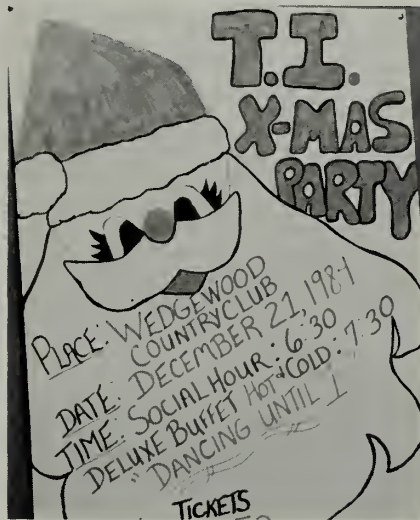 T.I.
X-MAS
PARTY
PLACE: WEDGEWOOD
COUNTRY CLUB
DATE: DECEMBER 21, 1984
TIME: SOCIAL HOUR: 6:30
DELUXE BUFFET HOT & COLD: 7:30
" DANCING UNTIL 1
TICKETS